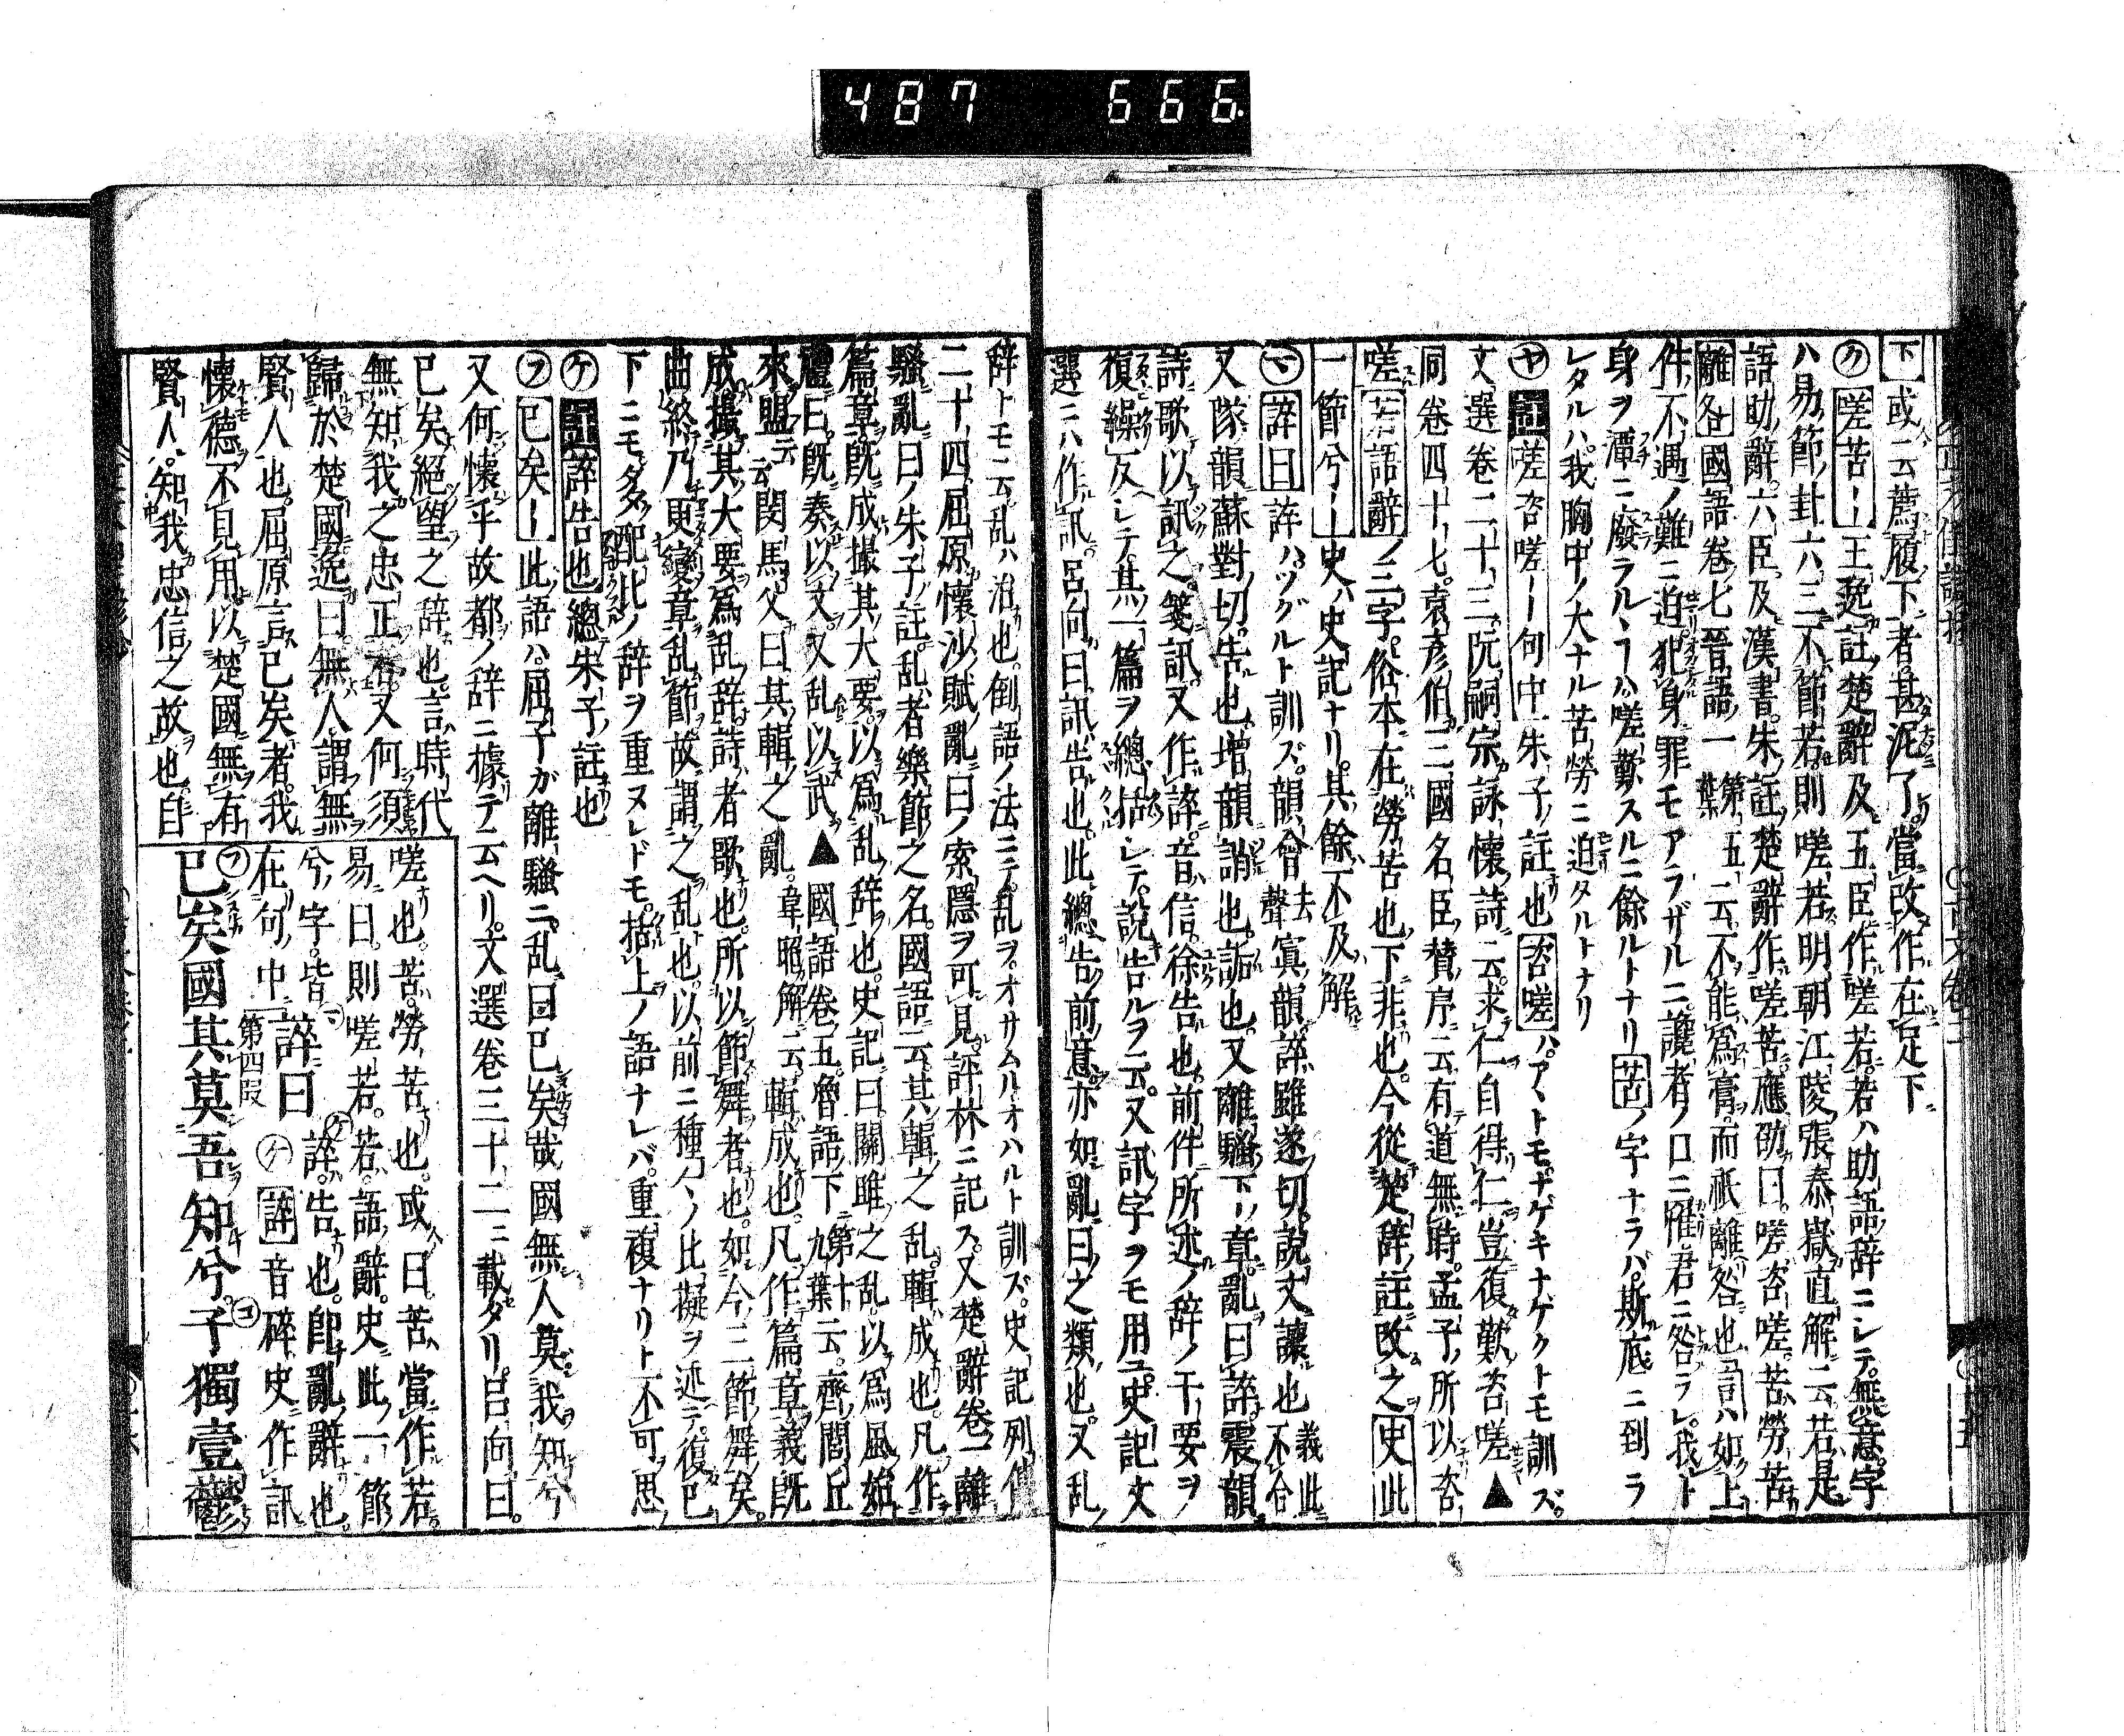 487 666
下或云薦履下者甚泥了當改作在足下
嗟苦ー王逸註楚辭及五臣作嗟若若ハ助語辞ニシテ無意字
ハ易節卦六三不節若則嗟若明朝江陵張泰嶽直解云若是
語助辭六臣及漢書朱註楚辭作嗟苦應劭曰嗟咨嗟苦勞苦
離咎國語卷七晉語一第五葉云不能爲膏而祇離咎也司ハ如上
件不遇ノ難ニ迫犯身罪モアラザルニ讒者ノ口ニ罹君ニ咎ラレ我ト
身ヲ潭ニ廢ラルヽヿハ嗟歎スルニ餘ルトナリ苦ノ字ナラバ斯底ニ到ラ
レタルハ我胸中ノ大ナル苦勞ニ迫タルトナリ
ヤ註嗟咨嗟ー句中朱子註也咨嗟ハアヽトモナゲキナゲクトモ訓ズ
文選卷二十三阮嗣宗詠懷詩云求仁自得仁豈復歎咨嗟▲
同卷四十七袁彦伯三國名臣贊序云有道無時孟子所以咨
嗟若語辭ノ三字俗本在勞苦也下非也今從楚辞註改之史此
一節兮ー史ハ史記ナリ其餘不及解
マ誶曰誶ハツグルト訓ズ韻會去聲寘韻誶雖遂切說文讓也義此不合
又隊韻蘇對切告也增韻誚也詬也又離騷下章亂曰誶震韻
詩歌以訊之箋訊又作誶音信徐告也前件所述ノ辞ノ干要ヲ
復繰反シテ其一篇ヲ總括シテ說告ルヲ云又訊字ヲモ用ユ史記文
選ニハ作訊呂向曰訊告也此總告前意亦如亂曰之類也又乱
辞トモ云乱ハ治也倒語ノ法ニテ乱ヲオサムルオハルト訓ズ史記列傳
二十四屈原懷沙賦亂曰ノ索隱ヲ可見評林ニ記ス又楚辭卷一離
騷亂曰ノ朱子註乱者樂節之名國語云其輯之乱輯成也凡作
篇章既成撮其大要以爲乱辞也史記曰關雎之乱以爲風始
禮曰既奏以文又乱以武▲國語卷五魯語下第十九葉云齊閭丘
來盟云云閔馬父曰其輯之亂韋昭解云輯成也凡作篇章義既
成撮其大要爲乱辞詩者歌也所以節舞者也如今三節舞矣
曲終乃更變章乱節故謂之乱也以前ニ種々ノ比擬ヲ述テ復已
下ニモ多配此ノ辞ヲ重ヌレドモ括上ノ語ナレバ重複ナリト不可思
ケ註誶告也總朱子註也
フ已矣ー此語ハ屈子ガ離騷ニ乱曰已矣哉國無人莫我知兮
又何懷乎故都ノ辞ニ據テ云ヘリ文選卷三十二ニ載タリ呂向曰
已矣絕望之辞也言時代
無知我之忠正者又何須
歸於楚國逸曰無人謂無
賢人也屈原言已矣者我
懷德不見用以楚國無有
賢人知我忠信之故也自
嗟也苦勞苦也或曰苦當作若
易曰則嗟若若語辭史此一節
兮字皆マ誶曰ケ誶告也卽亂辭也
在句中第四段ケ誶音碎史作訊
フ已矣國其莫吾知兮コ子獨壹鬱